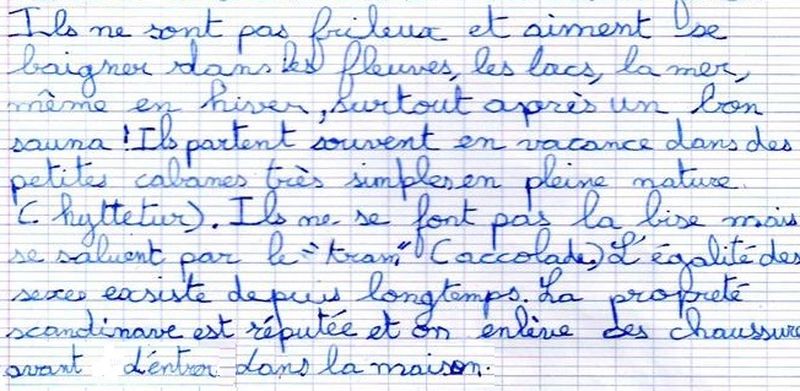 Ils ne sont pas frileux et aiment se
baigner dans les fleuves, les lacs, la mer,
même en hiver, surtout après un bon
sauna ! Ils partent souvent en vacance dans des
petites cabanes très simples en pleine nature
( hyttetur). Ils ne se font pas la bise mais
se saluent par le "kram" (accolade) L'égalité des
sexes exsiste depuis longtemps. La propreté
scandinave est réputée et on enlève ses chaussure
avant d'entrer dans la maison.